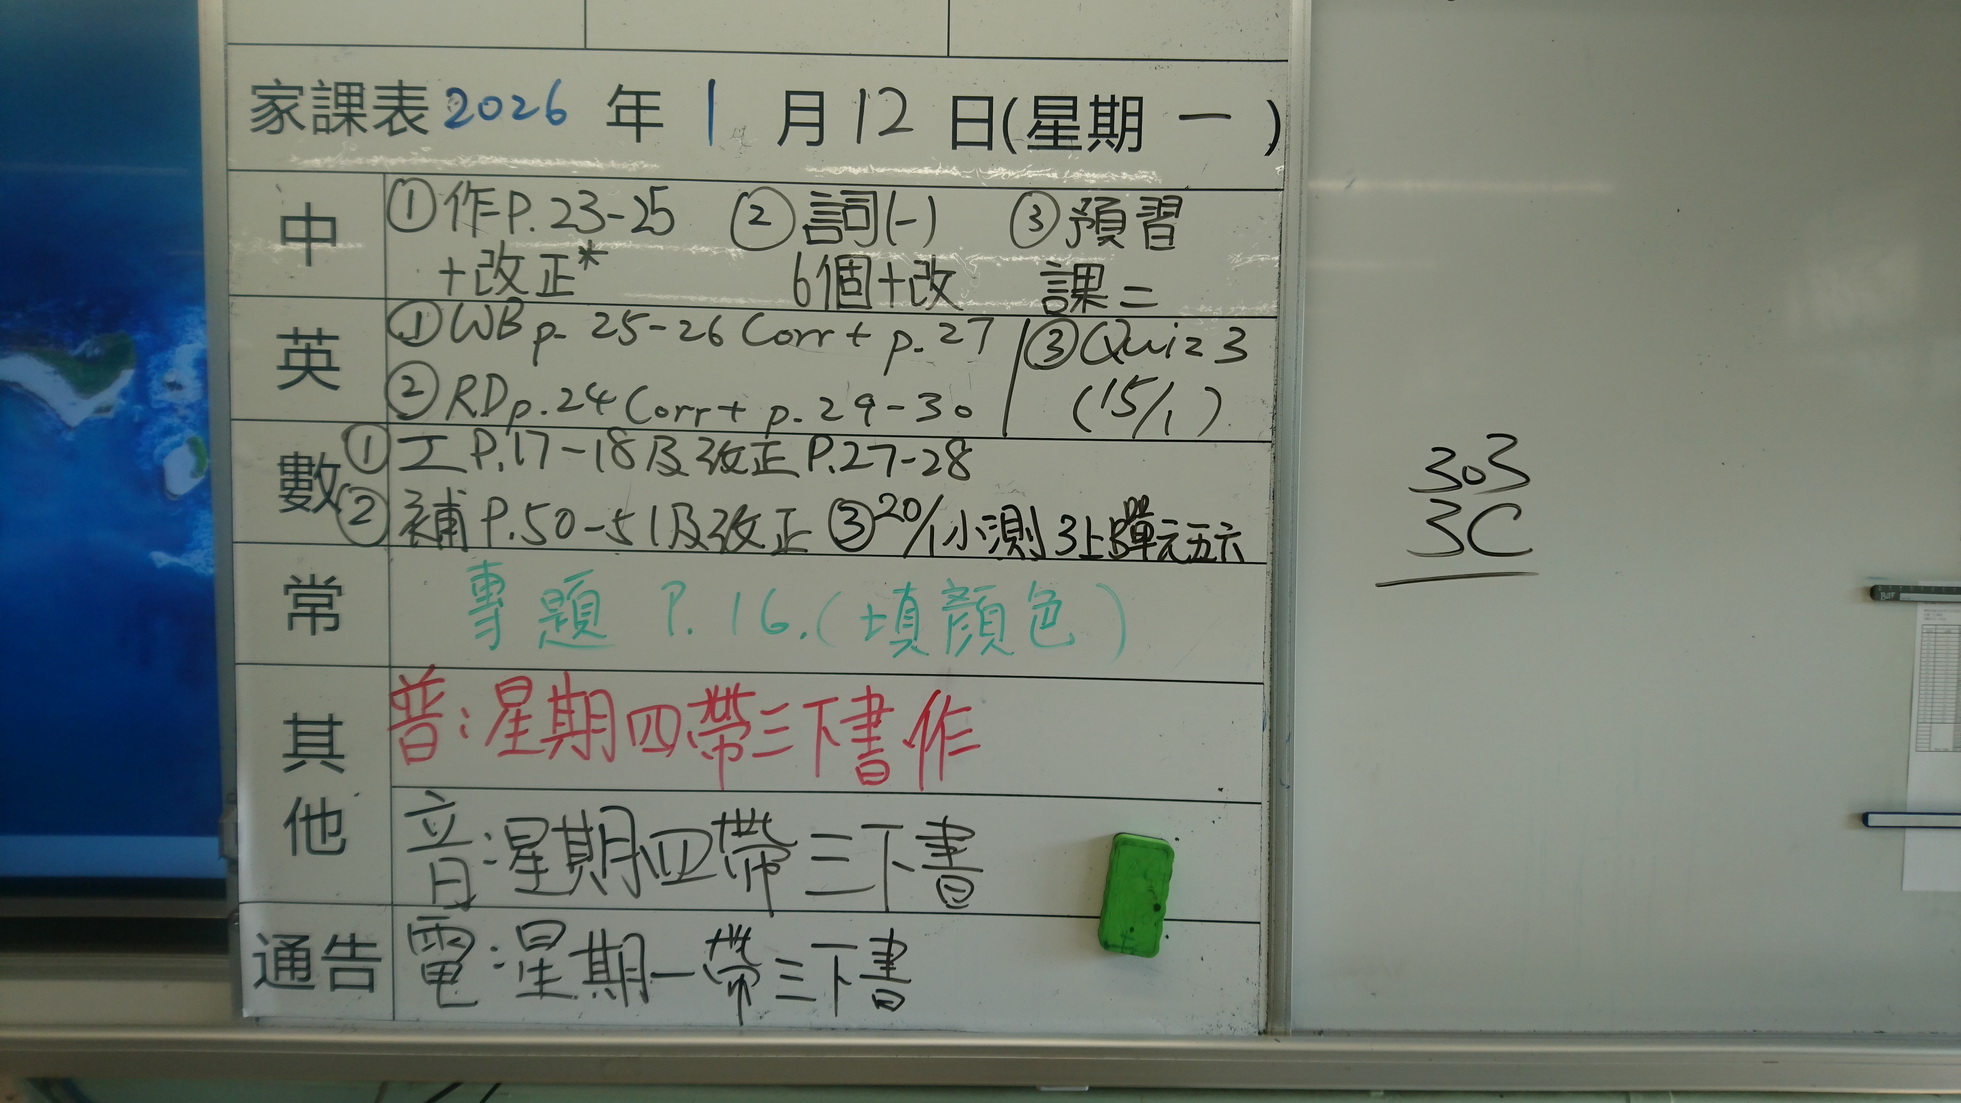 家課表 2026 年 1 月 12 日(星期 一 )
中 ①作P.23-25 ②詞(一) ③預習
+改正* 6個+改 課二
英 ①WB p. 25-26 Corr + p.27 ③Quiz 3
②RD p.24 Corr + p.29-30 (15/1)
數 ①工P.17-18及改正P.27-28
②補P.50-51及改正 ③20/1小測 3上B單元五六
常 專題 P.16.(填顏色)
其他 普:星期四帶三下書、作
音:星期四帶三下書
通告 電:星期一帶三下書
303
3C